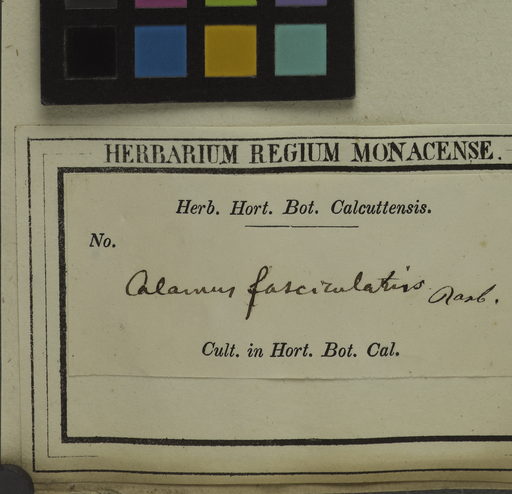 HERBARIUM REGIUM MONACENSE.
Herb. Hort. Bot. Calcuttensis.
No.
Calamus fasciculatus Roxb.
Cult. in Hort. Bot. Cal.